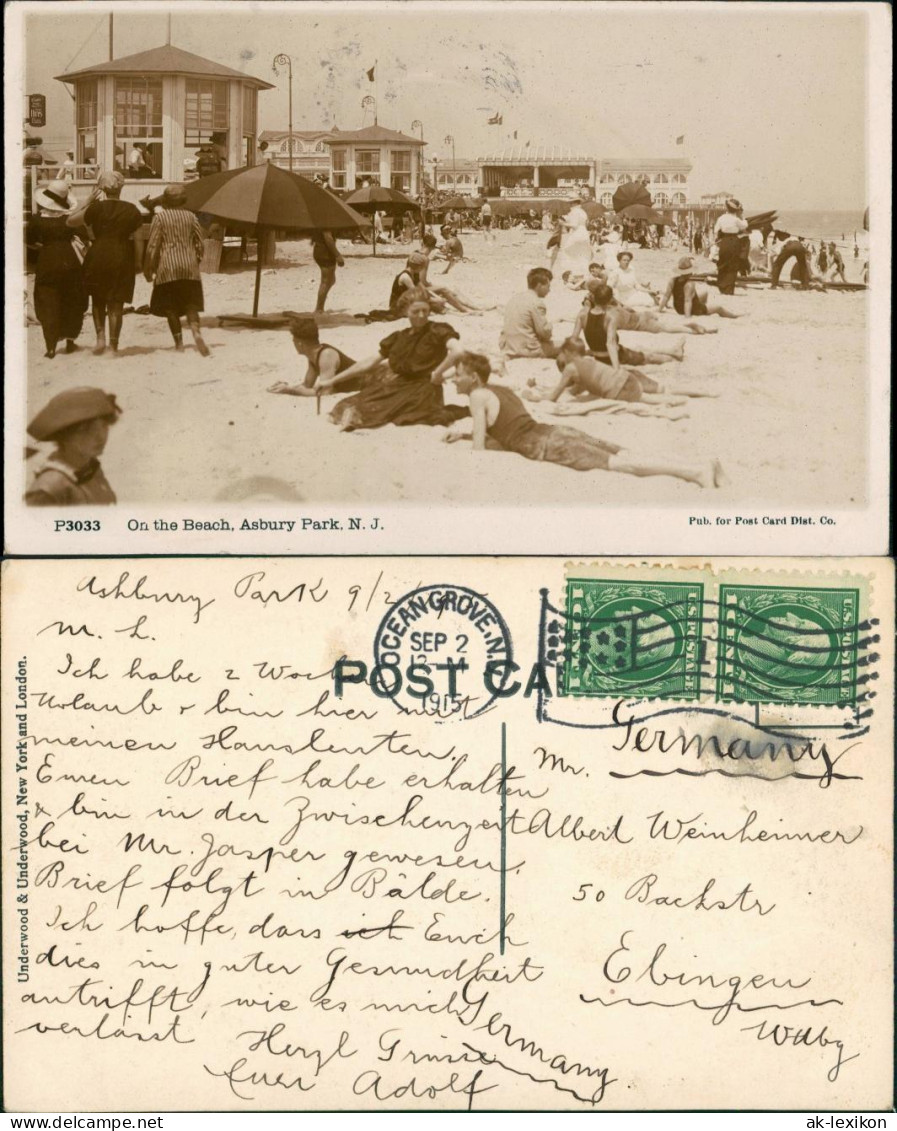 P3033 On the Beach, Asbury Park, N. J.
Pub. for Post Card Dist. Co.
Ashbury Park 9/2
M. L.
Ich habe 2 Wochen
Urlaub & bin hier mit
meinen Hausleuten.
Euren Brief habe erhalten
& bin in der Zwischenzeit
bei Mr. Jasper gewesen.
Brief folgt in Bälde.
Ich hoffe, dass ich Euch
dies in guter Gesundheit
antrifft, wie es mich
verlässt
Herzl Grüsse
Euer Adolf
Germany
Underwood & Underwood, New York and London.
POST CA
OCEAN GROVE, N.J.
SEP 2
1915
U.S. POSTAGE
U.S. POSTAGE
Germany
Mr.
Albert Weinheimer
50 Backstr
Ebingen
Wttbg
akpool.de
ak-lexikon